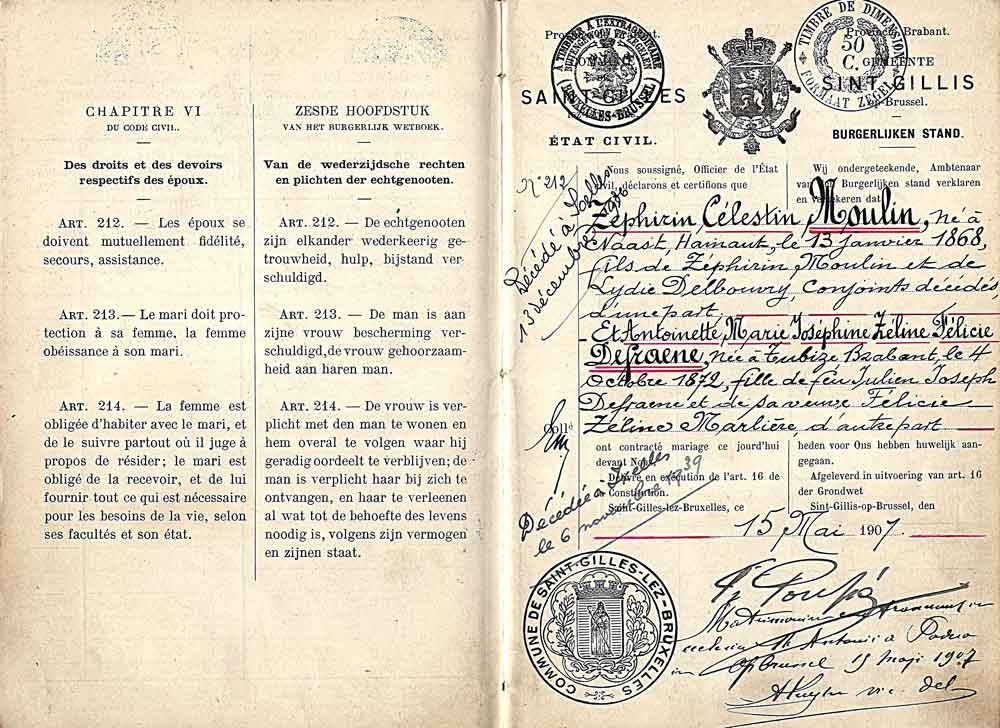 CHAPITRE VI
DU CODE CIVIL.
Des droits et des devoirs
respectifs des époux.
ART. 212. — Les époux se
doivent mutuellement fidélité,
secours, assistance.
ART. 213.— Le mari doit pro-
tection à sa femme, la femme
obéissance à son mari.
ART. 214. — La femme est
obligée d'habiter avec le mari, et
de le suivre partout où il juge à
propos de résider; le mari est
obligé de la recevoir, et de lui
fournir tout ce qui est nécessaire
pour les besoins de la vie, selon
ses facultés et son état.
ZESDE HOOFDSTUK
VAN HET BURGERLIJK WETBOEK.
Van de wederzijdsche rechten
en plichten der echtgenooten.
ART. 212. — De echtgenooten
zijn elkander wederkeerig ge-
trouwheid, hulp, bijstand ver-
schuldigd.
ART. 213. — De man is aan
zijne vrouw bescherming ver-
schuldigd, de vrouw gehoorzaam-
heid aan haren man.
ART. 214. — De vrouw is ver-
plicht met den man te wonen en
hem overal te volgen waar hij
geradig oordeelt te verblijven; de
man is verplicht haar bij zich te
ontvangen, en haar te verleenen
al wat tot de behoefte des levens
noodig is, volgens zijn vermogen
en zijnen staat.
Brabant.
GEMEENTE
SAINT-GILLES
SINT-GILLIS
Brussel.
ÉTAT CIVIL.
BURGERLIJKEN STAND.
TIMBRE DE DIMENSION
50
C.
FORMAAT ZEGEL
N° 212
Nous soussigné, Officier de l'État
Civil, déclarons et certifions que
Wij ondergeteekende, Ambtenaar
van den Burgerlijken stand verklaren
en verzekeren dat
Zéphirin Célestin Moulin, né à
Naast, Hainaut, le 13 janvier 1868,
fils de Zéphirin Moulin et de
Lydie Delbouvry, conjoints décédés,
d'une part.
Et Antoinette, Marie Joséphine Zéline Félicie
Defraene, née à Tubize Brabant, le 4
Octobre 1872, fille de feu Julien Joseph
Defraene et de sa veuve Félicie
Zéline Marlière, d'autre part
Décédé à Ixelles
13 décembre 1936
ont contracté mariage ce jourd'hui
devant Nous.
Délivré en exécution de l'art. 16 de
la Constitution.
Saint-Gilles-lez-Bruxelles, ce
heden voor Ons hebben huwelijk aan-
gegaan.
Afgeleverd in uitvoering van art. 16
der Grondwet
Sint-Gillis-op-Brussel, den
Décédée à Ixelles
le 6 novembre 1939
15 Mai 1907
COMMUNE DE SAINT-GILLES-LEZ-BRUXELLES
Matrimonium
ecclesia St Antonii a Padua
in Brussel 15 maji 1907
vic. del.